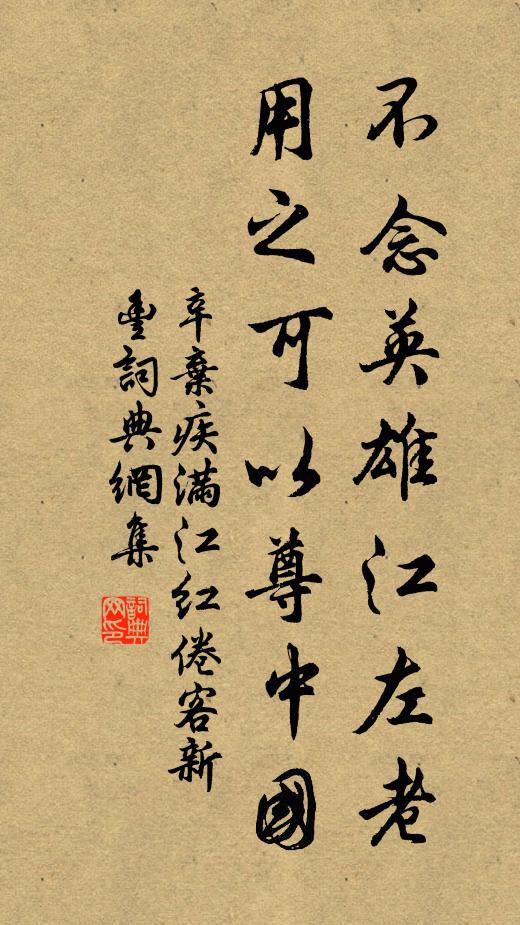 不念英雄江左老
用之可以尊中國
辛棄疾满江红倦客新
豊詞典網集
詞典网印